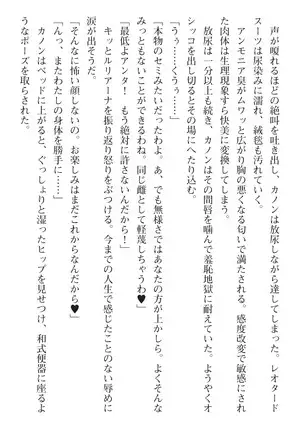 声が嗄れるほどの絶叫を吐き出し、カノンは放尿しながら達してしまった。レオタード
スーツは尿染みに濡れ、絨毯も汚れていく。
アンモニア臭がムワッと広がり胸の悪くなる匂いで満たされる。感度改変で敏感にされ
た肉体は生理現象すら快美に変換してしまう。
放尿は一分以上も続き、カノンはその間唇を噛んで羞恥地獄に耐えていた。ようやくオ
シッコを出し切るとその場にへたり込む。
「うぅ……くぅぅ……」
「本物のセミみたいだったわよ。あ、でも無様さではあなたの方が上かしら。よくそんな
みっともないことができるわね。同じ雌として軽蔑しちゃうわ♥」
「最低よアンタ！　もう絶対に許さないんだから！」
キッとルリアーナを振り返り怒りをぶつける。今までの人生で感じたことのない辱めに
涙が出そうだ。
「そんなに怖い顔しないの。お楽しみはまだこれからなんだから♥」
「んっ、またわたしの身体を勝手に……」
カノンはベッドに上がると、ぐっしょりと湿ったヒップを見せつけ、和式便器に座るよ
うなポーズを取らされた。